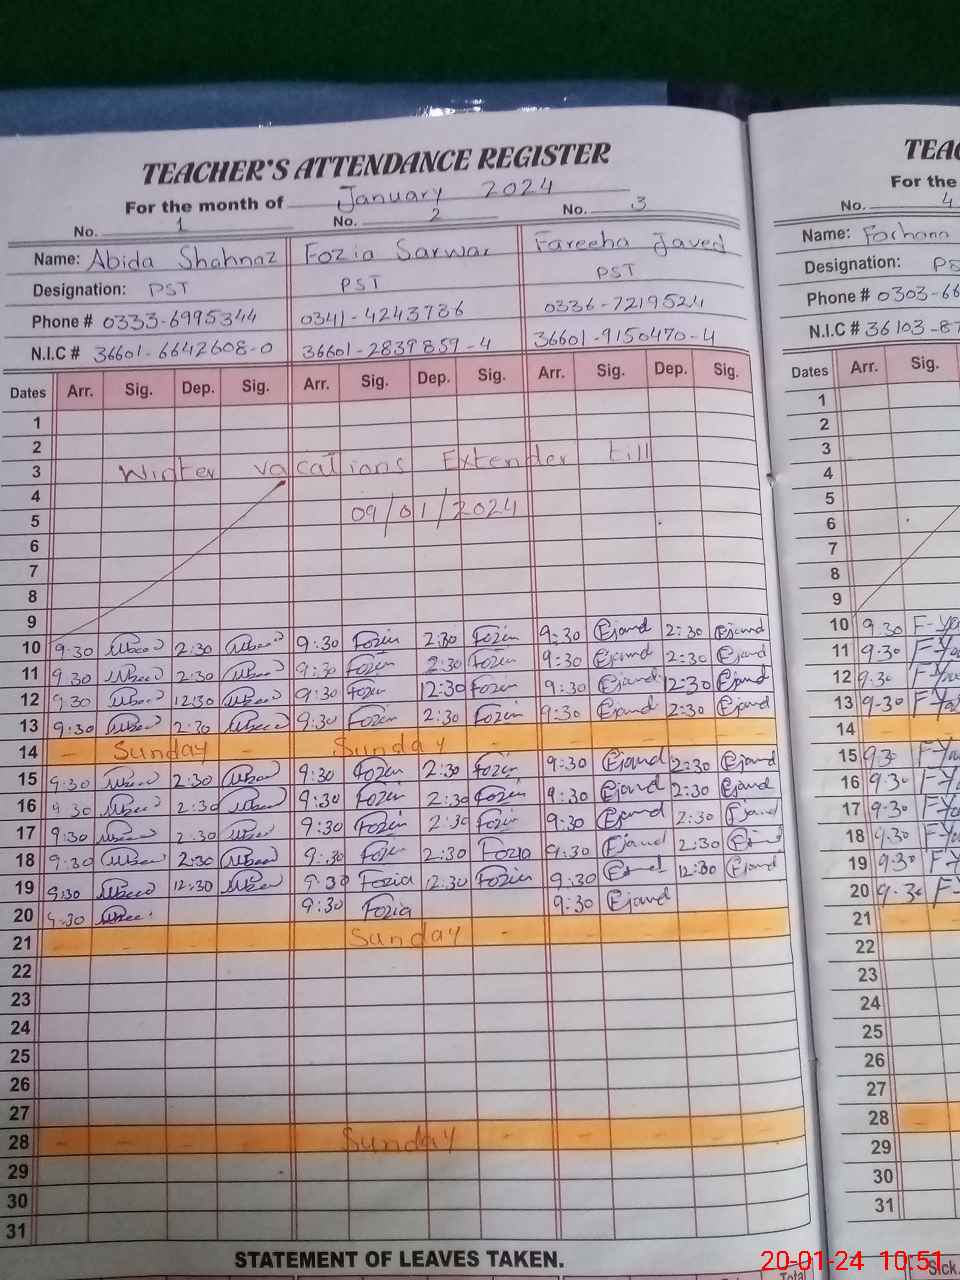 TEACHER'S ATTENDANCE REGISTER
For the month of January 2024
No. 1 No. 2 No. 3
Name: Abida Shahnaz Fozia Sarwar Fareeha Javed
Designation: PST PST PST
Phone # 0333-6995344 0341-4243736 0336-7219524
N.I.C # 36601-6642608-0 36601-2839859-4 36601-9150470-4
Dates Arr. Sig. Dep. Sig. Arr. Sig. Dep. Sig. Arr. Sig. Dep. Sig.
1
2
3 Winter vacations Extender till
4
5 09/01/2024
6
7
8
9
10 9:30 2:30 9:30 Fozia 2:30 Fozia 9:30 2:30
11 9:30 2:30 9:30 Fozia 2:30 Fozia 9:30 2:30
12 9:30 12:30 9:30 Fozia 12:30 Fozia 9:30 12:30
13 9:30 2:30 9:30 Fozia 2:30 Fozia 9:30 2:30
14 - Sunday - Sunday - - - - -
15 9:30 2:30 9:30 Fozia 2:30 Fozia 9:30 2:30
16 9:30 2:30 9:30 Fozia 2:30 Fozia 9:30 2:30
17 9:30 2:30 9:30 Fozia 2:30 Fozia 9:30 2:30
18 9:30 2:30 9:30 Fozia 2:30 Fozia 9:30 2:30
19 9:30 12:30 9:30 Fozia 12:30 Fozia 9:30 12:30
20 9:30 9:30 Fozia 9:30
21 - - - - - Sunday - - - - -
22
23
24
25
26
27
28 - - - - - Sunday - - - - -
29
30
31
STATEMENT OF LEAVES TAKEN.
Total
TEAC
For the
No. 4
Name:
Designation: PS
Phone # 0303-66
N.I.C # 36103-87
Dates Arr. Sig.
1
2
3
4
5
6
7
8
9
10 9:30
11 9:30
12 9:30
13 9-30
14 - -
15 9:30
16 9:30
17 9:30
18 9:30
19 9:30
20 9:30
21 - -
22
23
24
25
26
27
28 -
29
30
31
Sick.
20-01-24 10:51